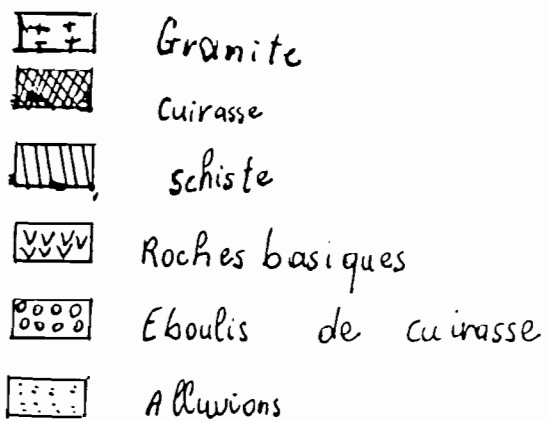 Granite
Cuirasse
schiste
Roches basiques
Eboulis de cuirasse
Alluvions